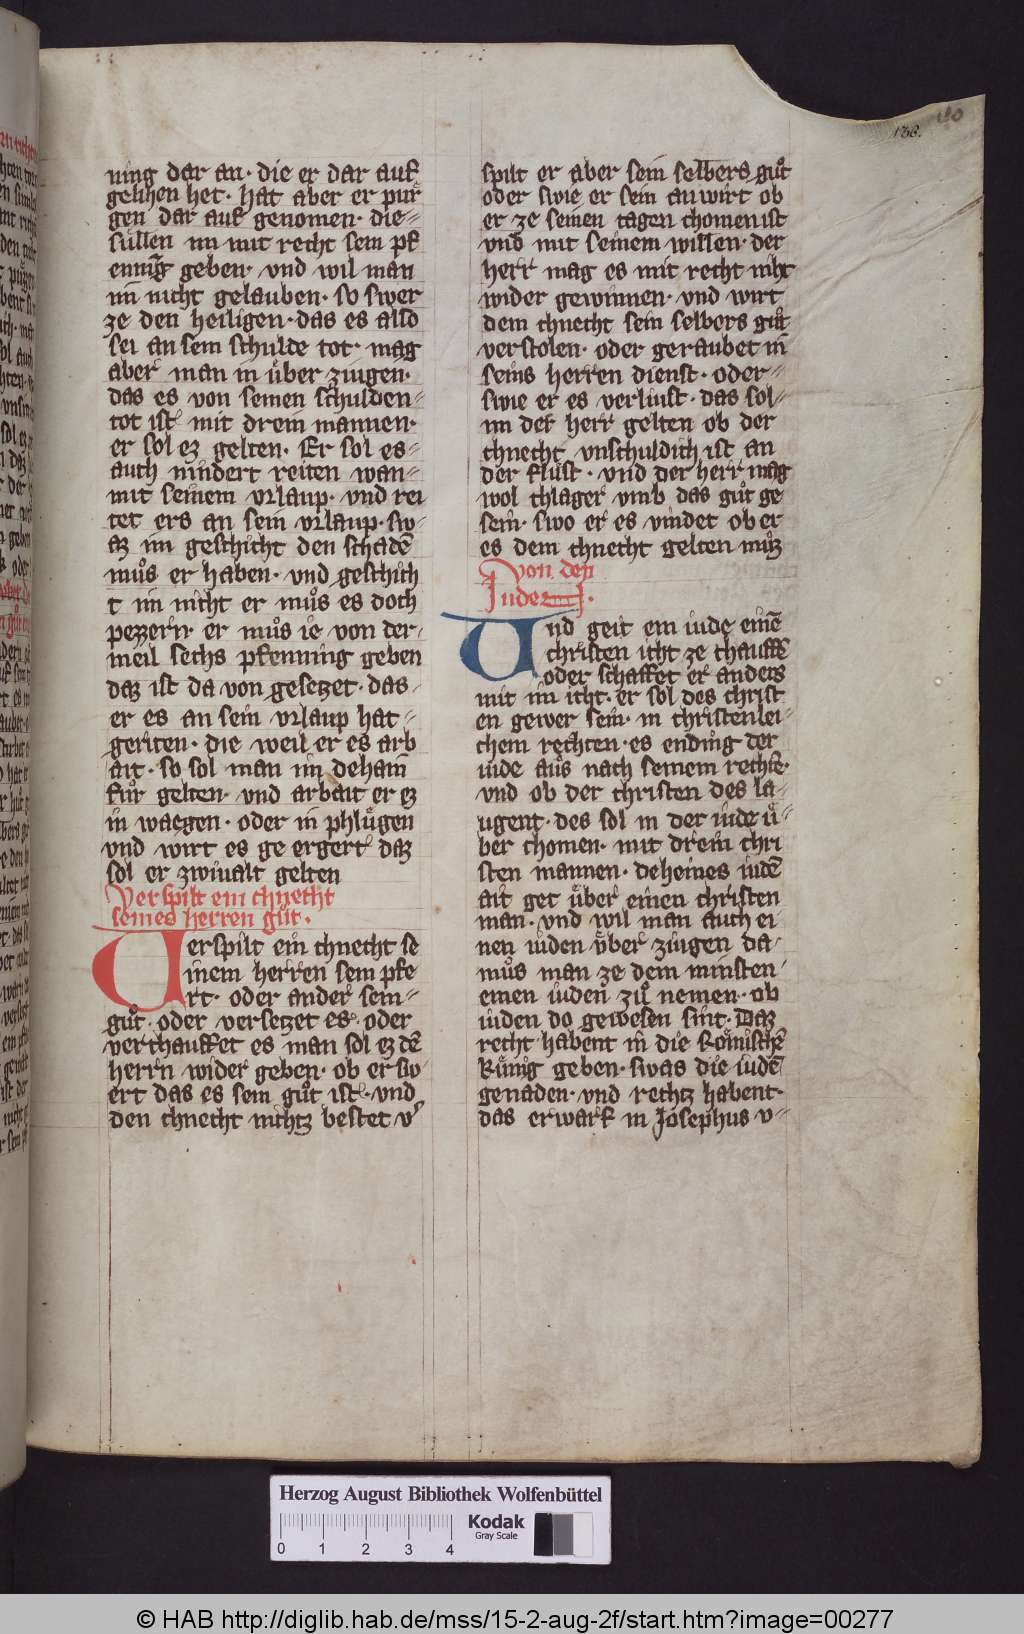 138.
110
ning dar an · die er dar auf
gelihen het · hat aber er pur
gen dar auf genomen · die
süllen im mit recht sein pf
enning geben · vnd wil man
im nicht gelauben · so swer
ze den heiligen · das es also
sei an sein schulde tot · mag
aber man in über zuigen ·
das es von seinen schulden
tot ist mit drein mannen ·
er sol ez gelten · Er sol es
auch nindert reiten wan
mit seinem vrlaup · vnd rei
tet ers an sein vrlaup · sw
az im geschicht den schadē
muͦs er haben · vnd geschich
t im nicht er muͦs es doch
pezzern · er muͦs ie von der
meil sechs pfenning geben
daz ist da von gesetzet · das
er es an sein vrlaup hat
geriten · die weil er es arb
ait · so sol man im dehain
fuͦr gelten · vnd arbait er ez
in waegen · oder in phluͤgen
vnd wirt es ge ergert daz
sol er zwiualt gelten
Verspilt ein chnecht
seines herren guͦt ·
Verspilt ein chnecht se
inem herren sein pfe
rt · oder ander sein
guͦt · oder versetzet es · oder
verchauffet es man sol ez dē
herrn wider geben · ob er sw
ert das es sein guͦt ist · vnd
den chnecht nichtz bestet v̉
spilt er aber sein selbers guͦt
oder swie er sein an wirt ob
er ze seinen tagen chomen ist
vnd mit seinem willen · der
herr mag es mit recht niht
wider gewinnen · vnd wirt
dem chnecht sein selbers guͦt
verstolen · oder geraubet in
seins herren dienst · oder
swie er es verliust · das sol
im der herr gelten ob der
chnecht vnschuldich ist an
der flust · vnd der herr mag
wol chlager vmb das guͦt ge
sein · swo er es vindet ob er
es dem chnecht gelten muͦz
Von den
Juden ·
Vnd geit ein iude einē
christen icht ze chauffē
oder schaffet er anders
mit im icht · er sol des christ
en gewer sein · in christenlei
chem rechten · es ending der
iude aus nach seinem rechte ·
vnd ob der christen des la
ugent · des sol in der iude uͤ
ber chomen · mit drein chri
sten mannen · deheines iudē
ait get uͤber einen christen
man · vnd wil man auch ei
nen iuden uͤber zuigen da
muͦs man ze dem minsten
einen iuden zuͦ nemen · ob
iuden do gewesen sint · Daz
recht habent in die Roͤmischē
Kuͤnig geben · swas die iudē
genaden · vnd rechtz habent ·
das erwarf in Josephus v
Herzog August Bibliothek Wolfenbüttel
Kodak
Gray Scale
0 1 2 3 4
© HAB http://diglib.hab.de/mss/15-2-aug-2f/start.htm?image=00277